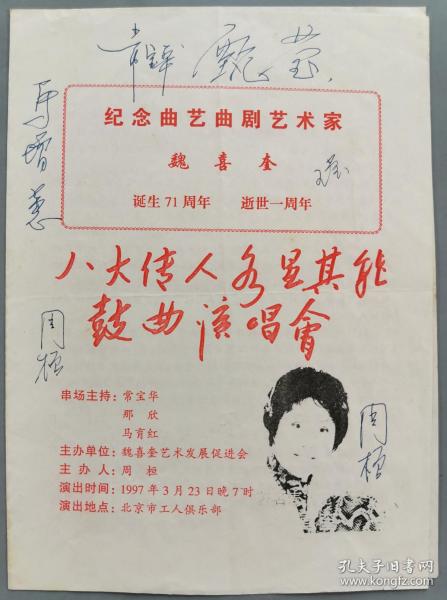 甄莹
马增蕙
纪念曲艺曲剧艺术家
魏喜奎
诞生71周年 逝世一周年
八大传人各显其能
鼓曲演唱會
周桓
周桓
串场主持：常宝华
那欣
马育红
主办单位：魏喜奎艺术发展促进会
主办人：周桓
演出时间：1997年3月23日晚7时
演出地点：北京市工人俱乐部
孔夫子旧书网